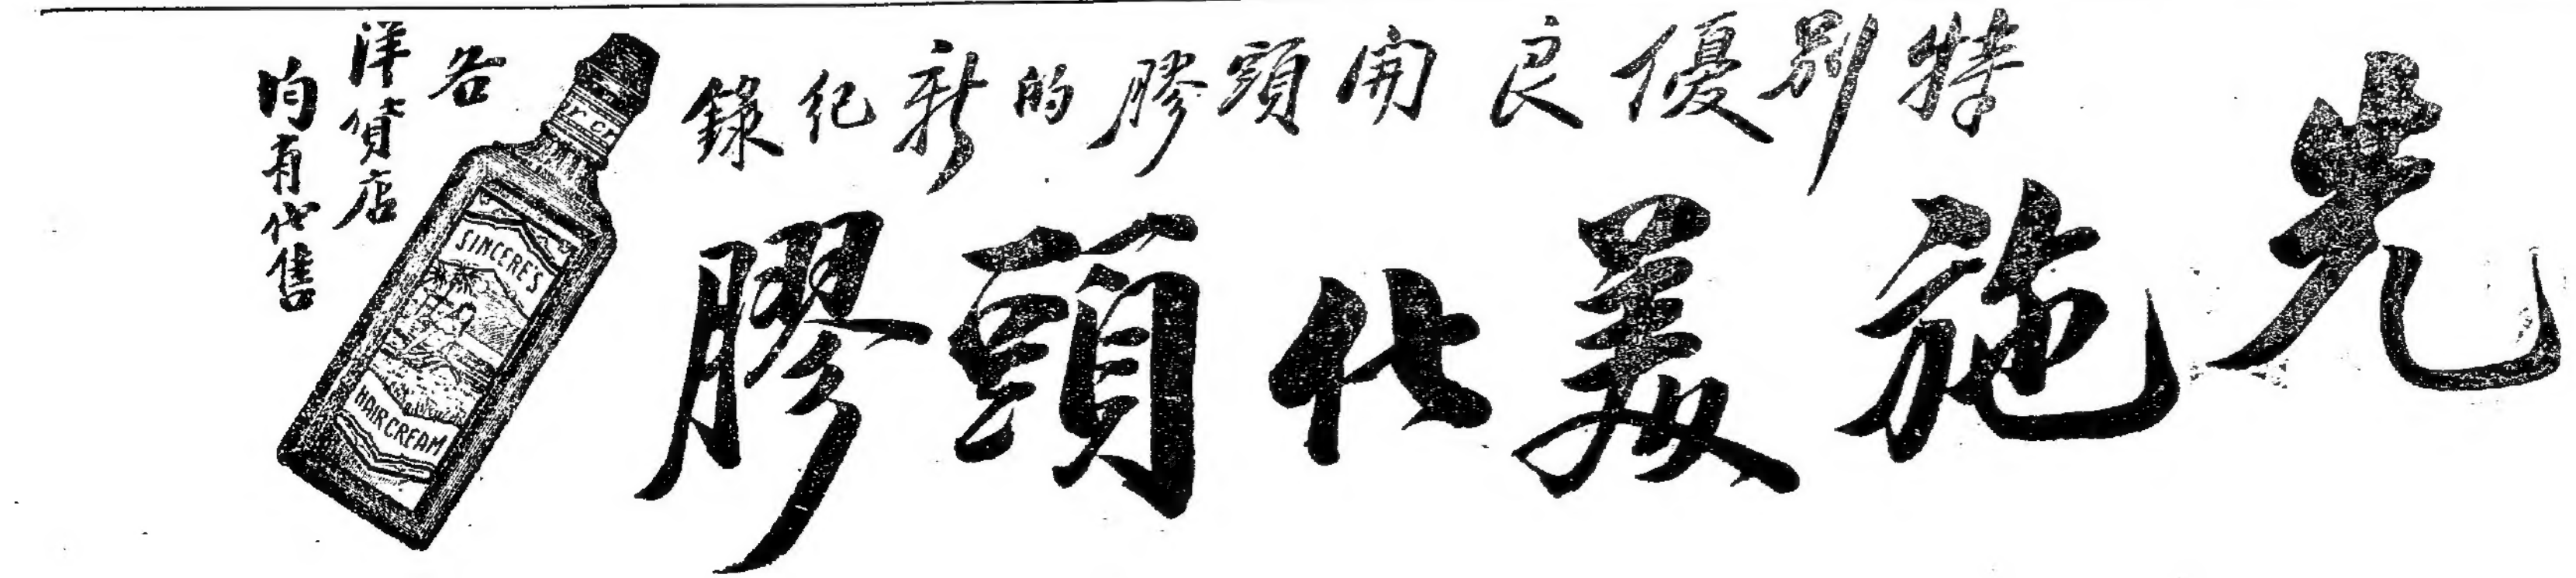 特別優良開頭膠的新紀錄
先施美化頭膠
各
洋貨店
均有代售
SINCERE'S
HAIR CREAM